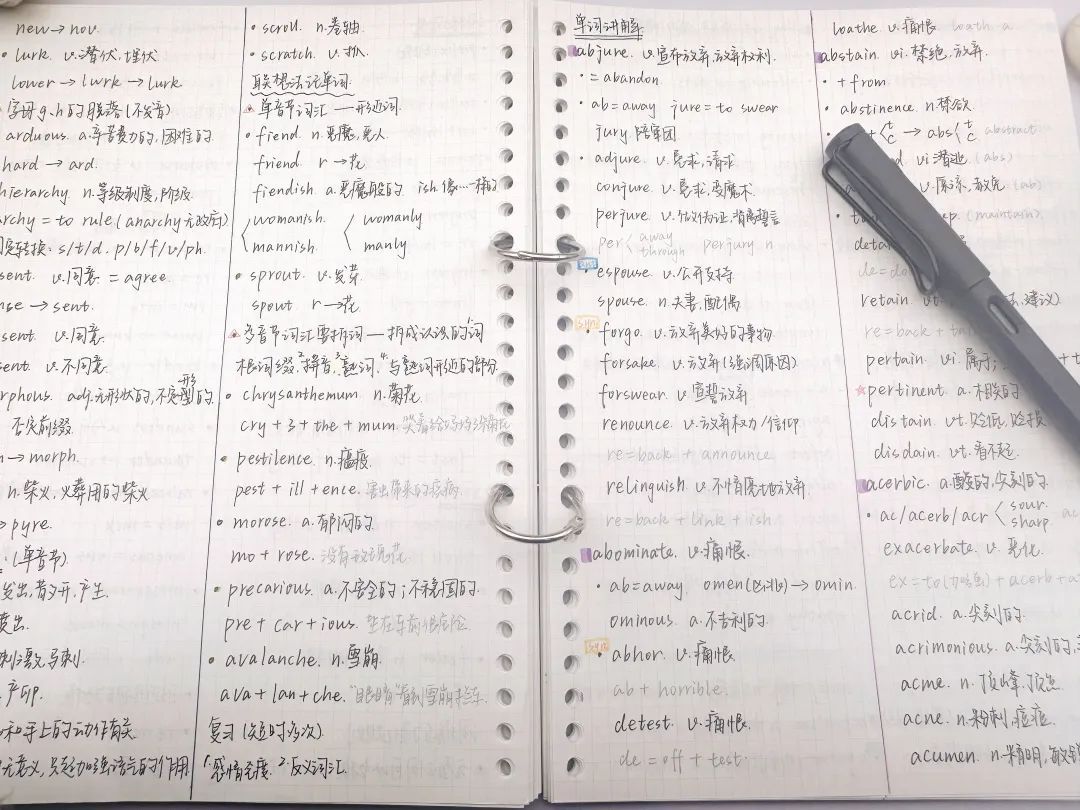 new → nov.
• lurk. v.潜伏,埋伏
lower → lwrk → lurk.
字母g.h的脱落(不发音)
arduous. a.辛苦费力的,困难的.
hard → ard.
hierarchy. n.等级制度,阶级.
archy = to rule (anarchy无政府)
转换: s/t/d. p/b/f/v/ph.
sent. v.同意 = agree.
→ sent.
sent. v.同意.
sent. v.不同意.
rphous. adj.无形状的,不定型的.
否定前缀.
→ morph.
n.柴火,火葬用的柴火
→ pyre.
(单音节)
发出,散开,产生.
刺激,马刺.
和手上的动作有关
无意义,只起加强语气的作用
• scroll. n.卷轴.
• scratch. v.抓.
联想法记单词.
单音节词汇 — 形近词.
• fiend. n.恶魔,恶人.
friend r → 花
fiendish. a.恶魔般的. ish像…一样的
womanish. womanly
mannish. manly
• sprout. v.发芽.
spout r → 花.
多音节词汇要拆词 — 拆成认识的¹词
根词缀.²拼音.³熟词.⁴与熟词形近的部分.
• chrysanthemum. n.菊花.
cry + 3 + the + mum.
• pestilence. n.瘟疫.
pest + ill + ence. 害虫带来的疾病
• morose. a.郁闷的.
mo + rose. 没有玫瑰花.
• precarious. a.不安全的;不稳固的.
pre + car + ious. 坐在车前很危险
• avalanche. n.雪崩.
ava + lan + che.
复习(短时多次)
1.感情态度. 2.反义词汇.
单词讲解
abjure. v.宣布放弃,放弃权利.
• = abandon.
• ab = away jure = to swear
jury.陪审团
• adjure. v.恳求,请求
conjure. v.恳求,变魔术.
perjure. v.作伪证,背离誓言
per away through perjury n
• espouse. v.公开支持
spouse. n.夫妻,配偶
syn
• forgo. v.放弃美好的事物
forsake. v.放弃(强调原因)
forswear. v.宣誓放弃
renounce. v.放弃权力/信仰
re = back + announce
relinquish. v.不情愿地放弃.
re = back + link + ish
abominate. v.痛恨.
• ab = away. omen(凶兆) → omin.
ominous. a.不吉利的
syn
• abhor. v.痛恨
ab + horrible.
detest. v.痛恨.
de = off + test
loathe. v.痛恨 loath. a
abstain. vi.禁绝,放弃.
• + from
• abstinence. n.禁欲
t c → abs t c abstract
vi.潜逃. (abs)
(ab)
(maintain)
retain. vt.
re = back + tain
pertain. vi.属于;
pertinent. a.相关的
distain. vt.贬低,贬损
disdain. vt.看不起.
acerbic. a.酸的,尖刻的.
• ac/acerb/acr sour. sharp.
exacerbate. v.恶化.
ex = to(加强) + acerb +
acrid. a.尖刻的.
acrimonious. a.尖刻的,
acme. n.顶峰,顶点
acne. n.粉刺,痘痘
acumen. n.精明,敏锐